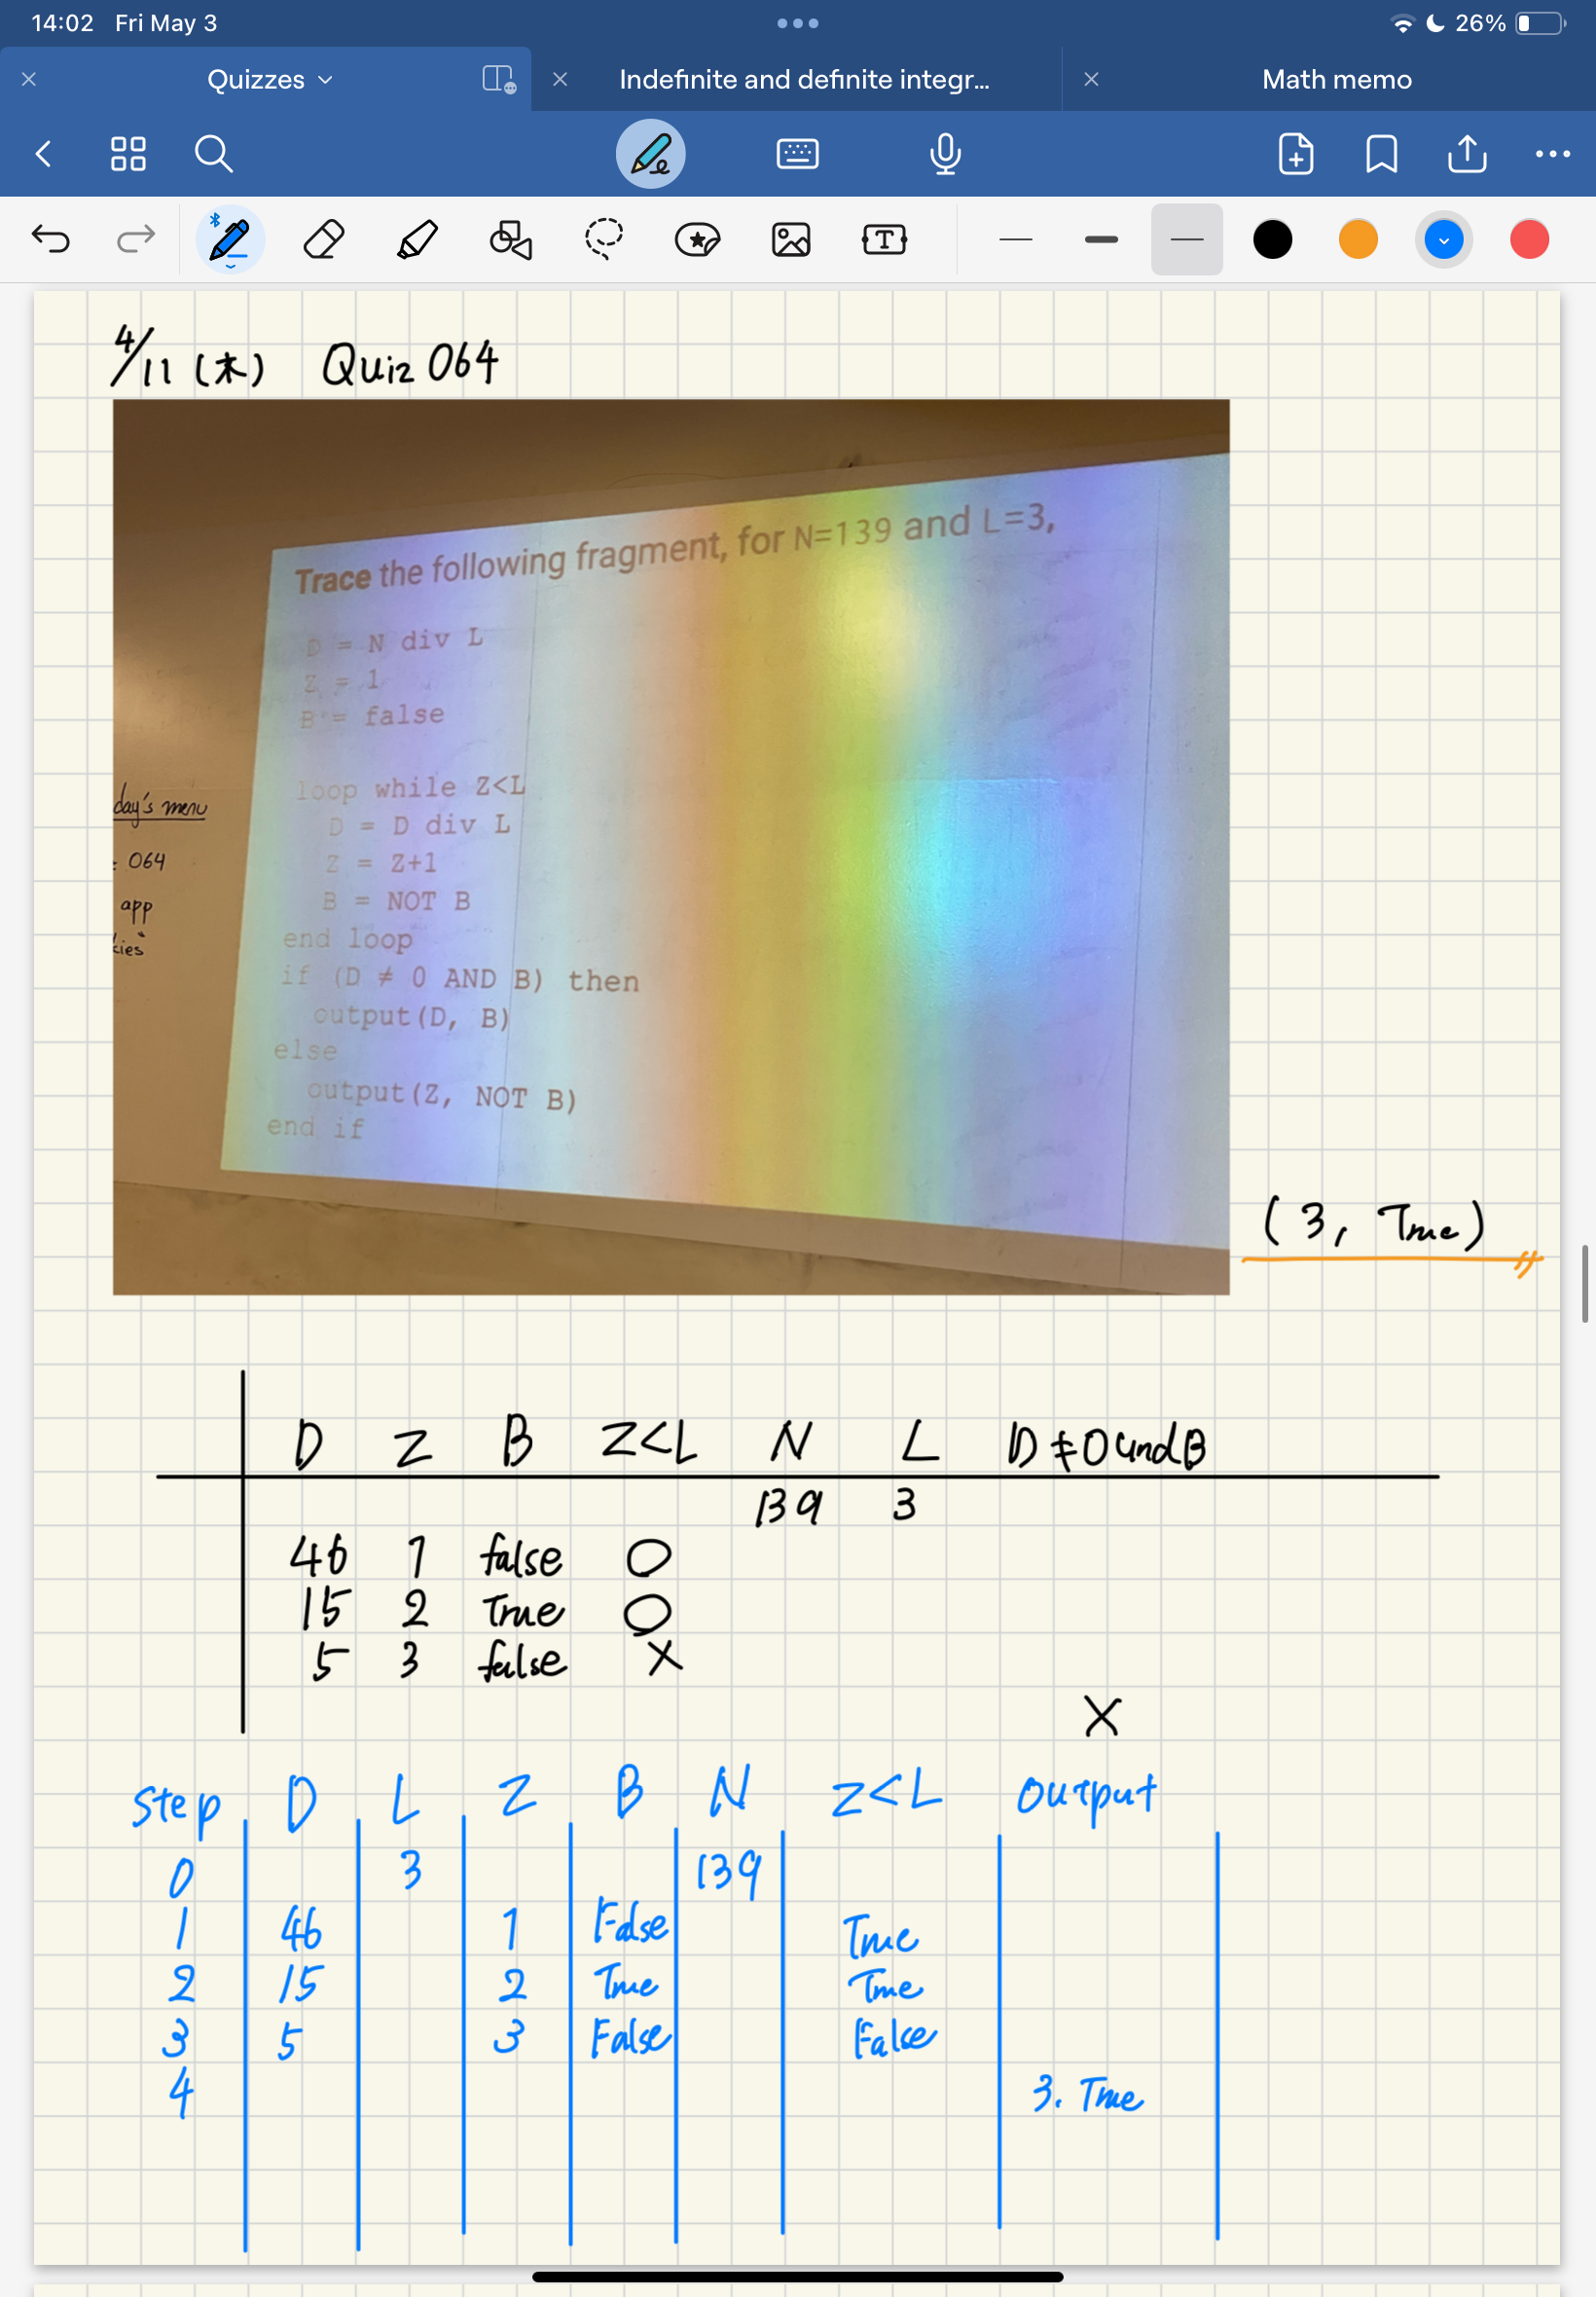 14:02 Fri May 3 26%
Quizzes Indefinite and definite integr... Math memo
4/11 (木) Quiz 064
Trace the following fragment, for N=139 and L=3,
D = N div L
Z = 1
B = false
loop while Z<L
D = D div L
Z = Z+1
B = NOT B
end loop
if (D ≠ 0 AND B) then
output(D, B)
else
output(Z, NOT B)
end if
day's menu
: 064
app
kies"
(3, True)
D Z B Z<L N L D≠0 and B
139 3
46 1 false O
15 2 True O
5 3 false X
X
Step D L Z B N Z<L Output
0 3 139
1 46 1 False True
2 15 2 True True
3 5 3 False False
4 3. True